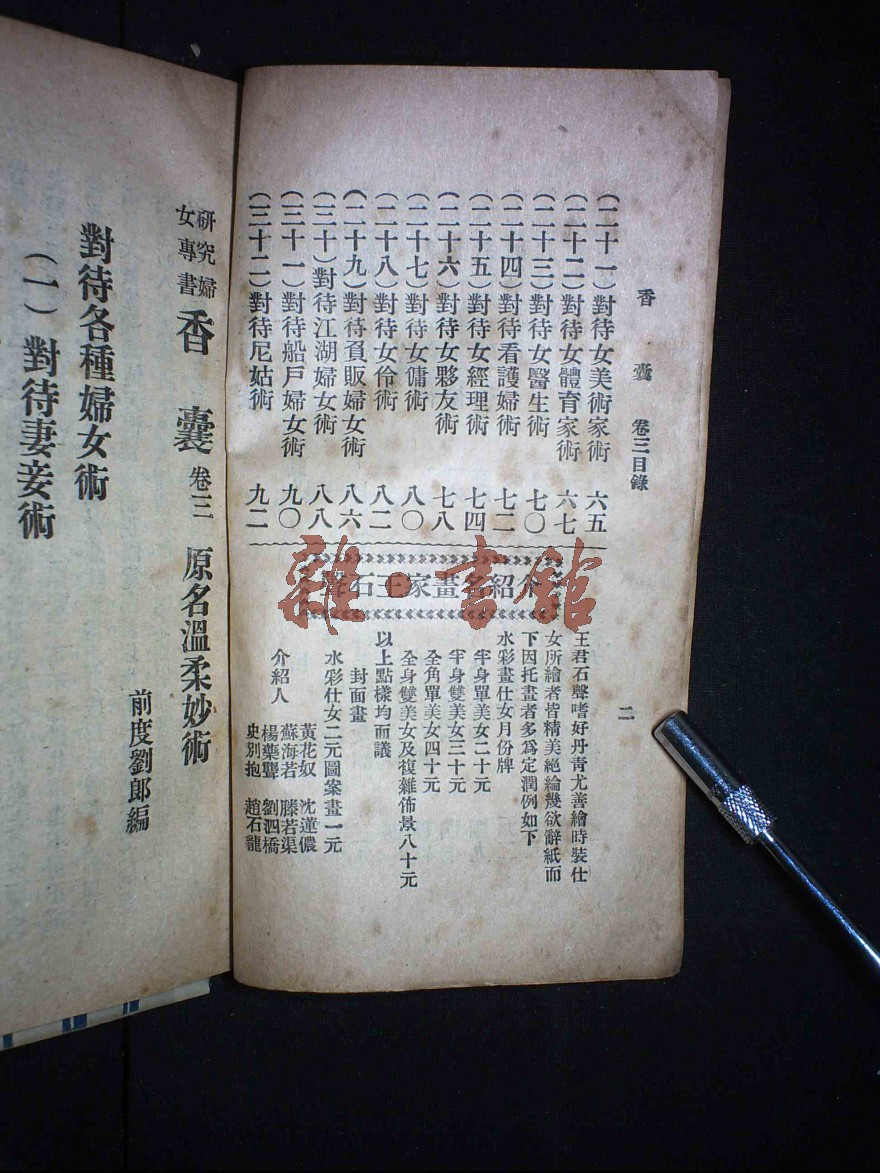 香囊 卷三目錄 二
（二十一）對待女美術家術 六五
（二十二）對待女體育家術 六七
（二十三）對待女醫生術 七〇
（二十四）對待看護婦術 七二
（二十五）對待女經理術 七四
（二十六）對待女夥友術 七八
（二十七）對待女傭術 八〇
（二十八）對待女伶術 八二
（二十九）對待負販婦女術 八六
（三十）對待江湖婦女術 八八
（三十一）對待船戶婦女術 九〇
（三十二）對待尼姑術 九二
介紹名畫家王石聲
王君石聲嗜好丹青尤善繪時裝仕
女所繪者皆精美絕倫幾欲辭紙而
下因托畫者多為定潤例如下
水彩畫仕女月份牌
半身單美女二十元
半身雙美女三十元
全角單美女四十元
全身雙美女及複雜佈景八十元
以上點樣均面議
封面畫
水彩仕女二元圖案畫一元
介紹人
黃花奴 沈蓮儂
蘇海若 滕若渠
楊藥聾 劉泗橋
史別抱 趙石龍
雜·書館
研究婦
女專書
香囊 卷三 原名溫柔妙術
前度劉郎編
對待各種婦女術
（一）對待妻妾術